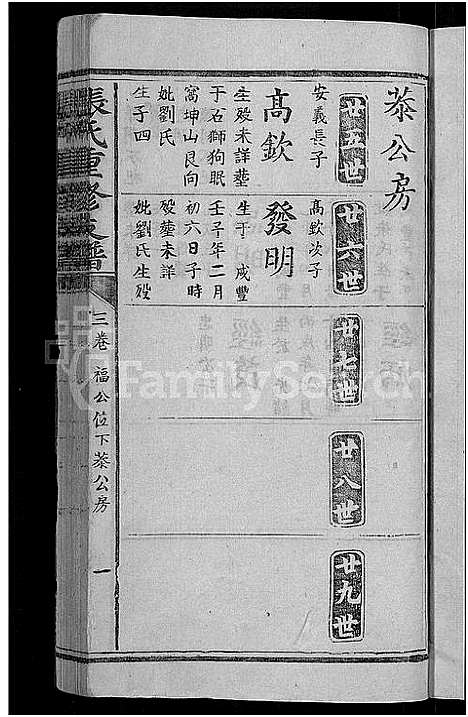 菾公房
廿五世
安義長子
高欽
生殁未詳塟
于石獅狗眠
窩坤山艮向
妣劉氏
生子四
廿六世
高欽次子
發明
生于咸豐
壬子年二月
初六日子時
殁塟未詳
妣劉氏生殁
廿七世
廿八世
廿九世
張氏重修支譜
三卷 福公位下菾公房 一
FamilySearch